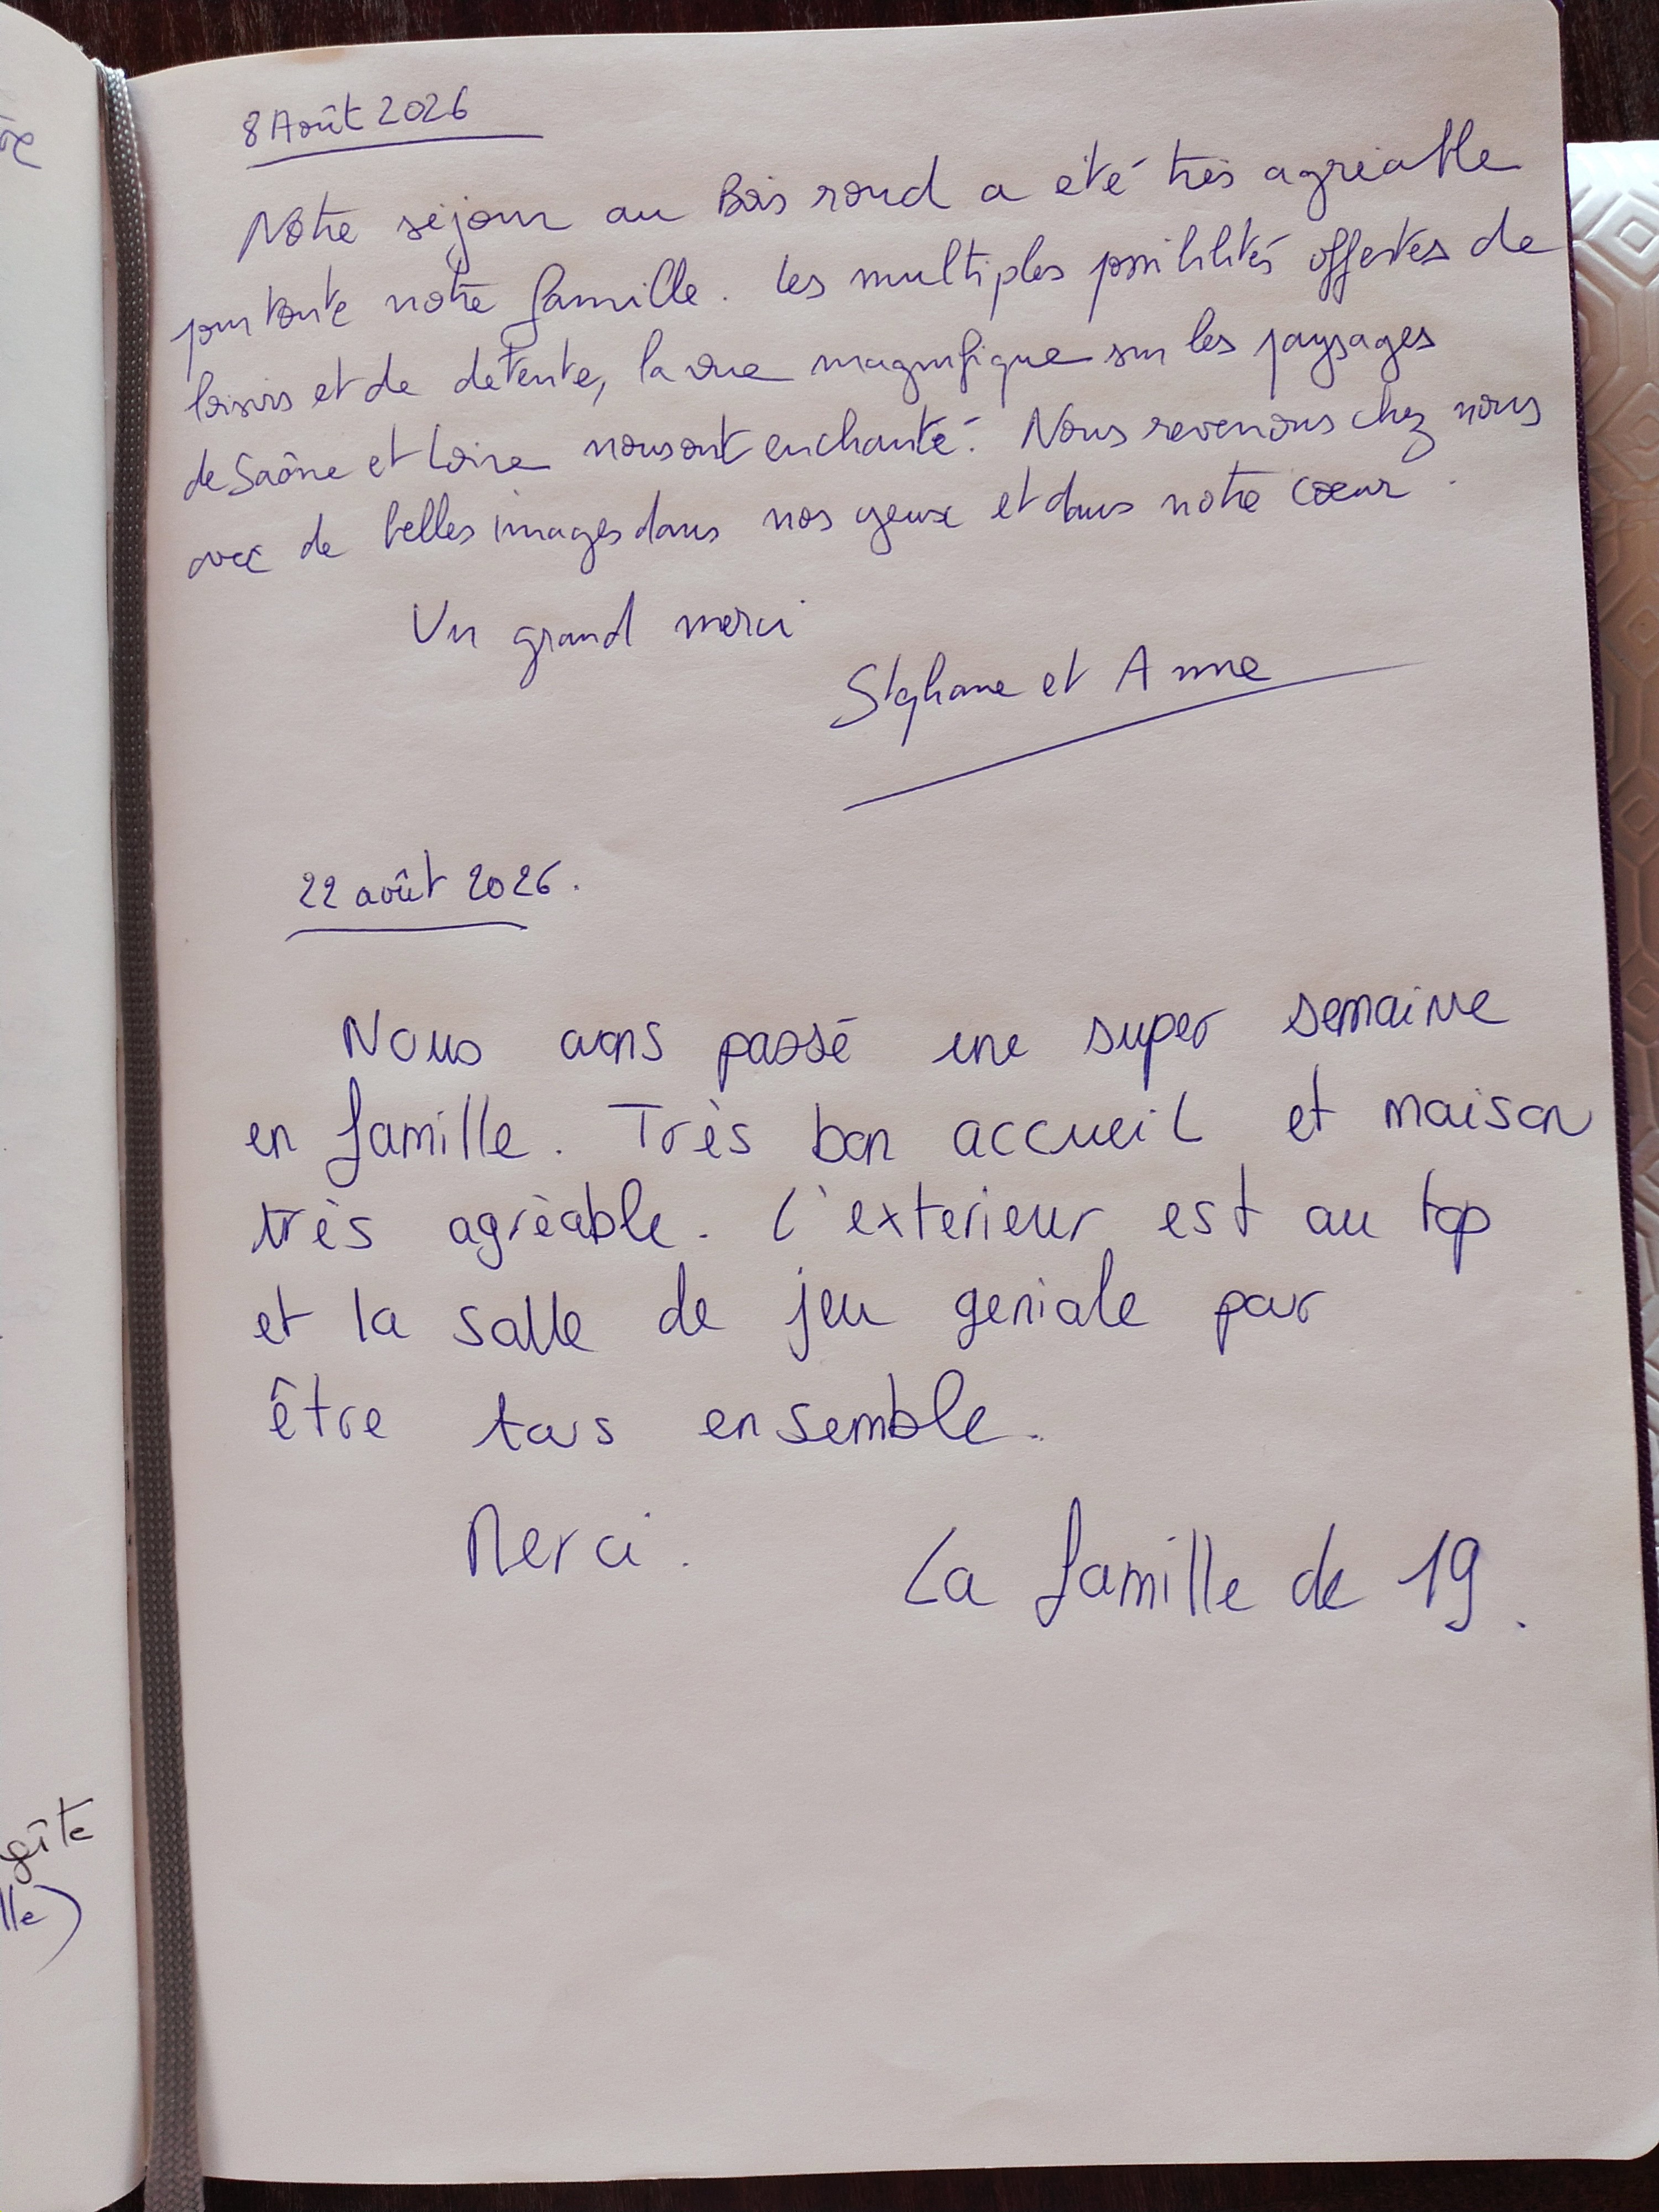 8 Août 2026
Notre séjour au Bois rond a été très agréable
pour toute notre famille. Les multiples possibilités offertes de
loisirs et de détente, la vue magnifique sur les paysages
de Saône et Loire nous ont enchanté. Nous revenons chez nous
avec de belles images dans nos yeux et dans notre coeur.
Un grand merci
Stéphane et Anne
22 août 2026.
Nous avons passé une super semaine
en famille. Très bon accueil et maison
très agréable. L'exterieur est au top
et la salle de jeu geniale pour
être tous ensemble.
Merci.
La famille de 19.
gîte
lle)